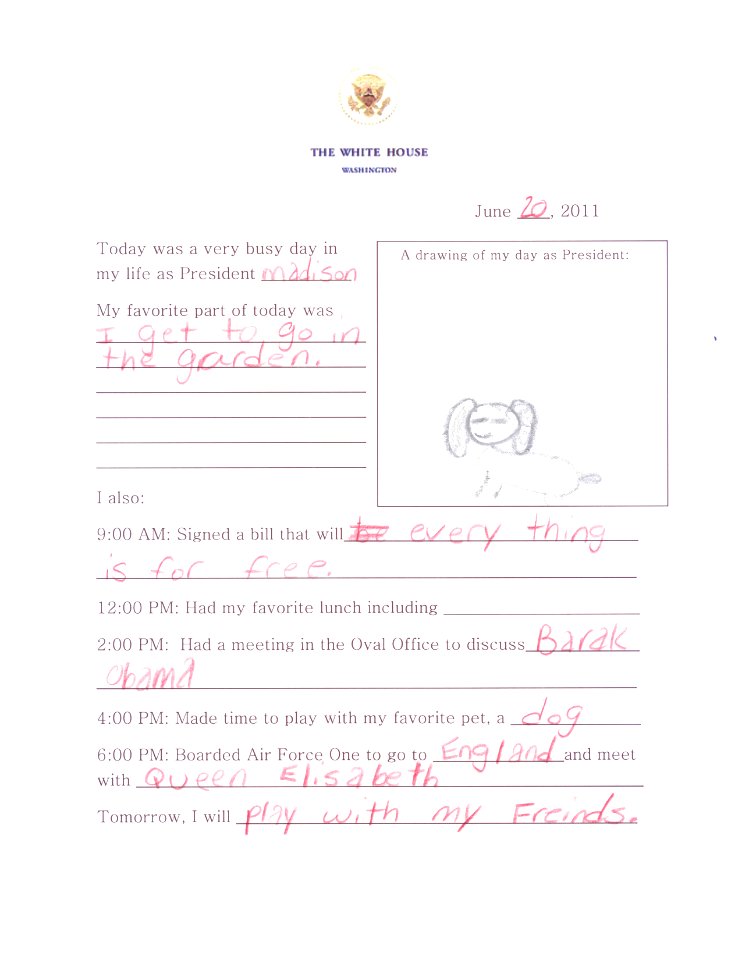 THE WHITE HOUSE
WASHINGTON
June 20, 2011
Today was a very busy day in
my life as President madison
My favorite part of today was
I get to go in
the garden.
A drawing of my day as President:
I also:
9:00 AM: Signed a bill that will be every thing
is for free.
12:00 PM: Had my favorite lunch including
2:00 PM: Had a meeting in the Oval Office to discuss Barak
Obama
4:00 PM: Made time to play with my favorite pet, a dog
6:00 PM: Boarded Air Force One to go to England and meet
with Queen Elisabeth
Tomorrow, I will play with my Freinds.